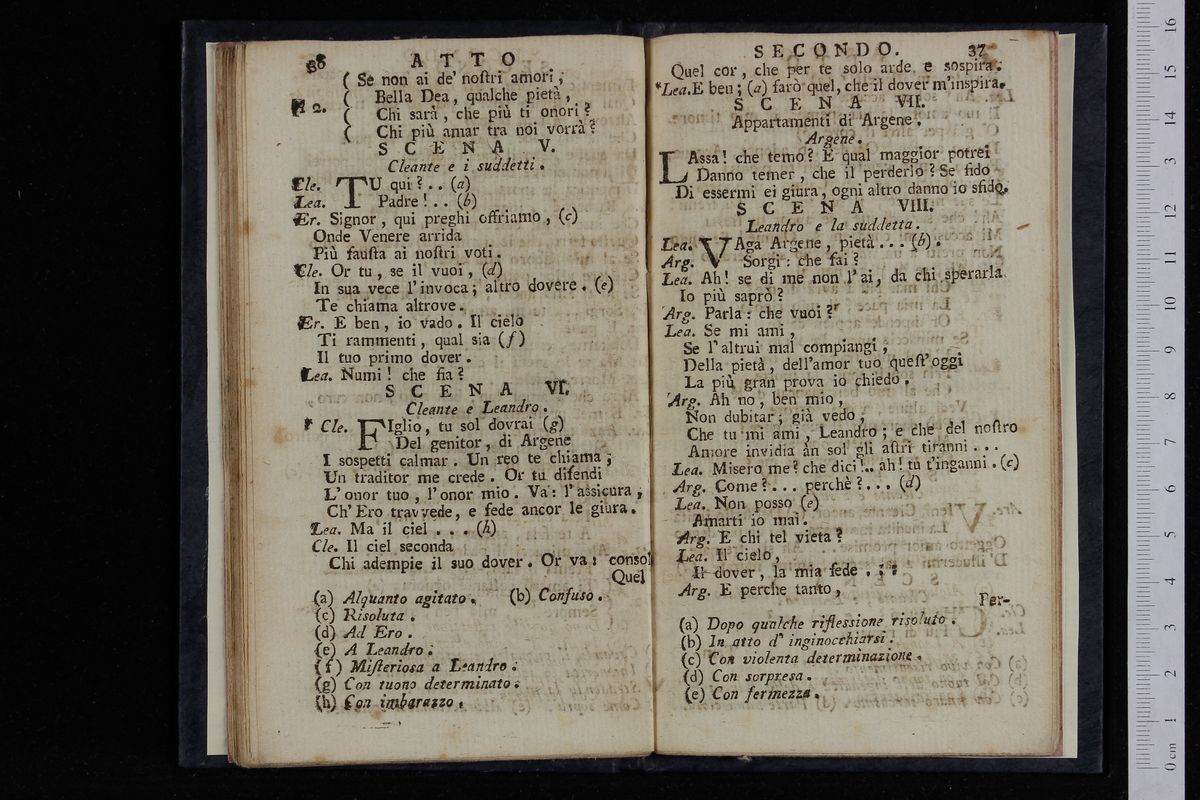 36 ATTO
( Se non ai de' noſtri amori,
( Bella Dea, qualche pietà,
a 2. ( Chi sarà, che più ti onori?
( Chi più amar tra noi vorrà?
SCENA V.
Cleante e i suddetti.
Cle. TU qui?.. (a)
Lea. Padre!.. (b)
Er. Signor, qui preghi offriamo, (c)
Onde Venere arrida
Più fauſta ai noſtri voti.
Cle. Or tu, se il vuoi, (d)
In sua vece l'invoca; altro dovere. (e)
Te chiama altrove.
Er. E ben, io vado. Il cielo
Ti rammenti, qual sia (f)
Il tuo primo dover.
Lea. Numi! che fia?
SCENA VI.
Cleante e Leandro.
Cle. FIglio, tu sol dovrai (g)
Del genitor, di Argene
I sospetti calmar. Un reo te chiama;
Un traditor me crede. Or tu difendi
L'onor tuo, l'onor mio. Va: l'assicura,
Ch'Ero travvede, e fede ancor le giura.
Lea. Ma il ciel... (h)
Cle. Il ciel seconda
Chi adempie il suo dover. Or va: consol
Quel
(a) Alquanto agitato. (b) Confuso.
(c) Risoluta.
(d) Ad Ero.
(e) A Leandro.
(f) Miſteriosa a Leandro.
(g) Con tuono determinato.
(h) Con imbarazzo.
SECONDO. 37
Quel cor, che per te solo arde e sospira.
Lea. E ben; (a) farò quel, che il dover m'inspira.
SCENA VII.
Appartamenti di Argene.
Argene.
LAssa! che temo? E qual maggior potrei
Danno temer, che il perderlo? Se fido
Di essermi ei giura, ogni altro danno io sfido.
SCENA VIII.
Leandro e la suddetta.
Lea. VAga Argene, pietà... (b).
Arg. Sorgi: che fai?
Lea. Ah! se di me non l'ai, da chi sperarla
Io più saprò?
Arg. Parla: che vuoi?
Lea. Se mi ami,
Se l'altrui mal compiangi,
Della pietà, dell'amor tuo queſt'oggi
La più gran prova io chiedo.
Arg. Ah no, ben mio,
Non dubitar; già vedo,
Che tu mi ami, Leandro; e che del noſtro
Amore invidia àn sol gli aſtri tiranni...
Lea. Misero me? che dici!.. ah! tu t'inganni. (c)
Arg. Come?... perchè?... (d)
Lea. Non posso (e)
Amarti io mai.
Arg. E chi tel vieta?
Lea. Il cielo,
Il dover, la mia fede...
Arg. E perche tanto,
Per-
(a) Dopo qualche riflessione risoluto.
(b) In atto d'inginocchiarsi.
(c) Con violenta determinazione.
(d) Con sorpresa.
(e) Con fermezza.
0 cm 1 2 3 4 5 6 7 8 9 10 11 12 13 14 15 16